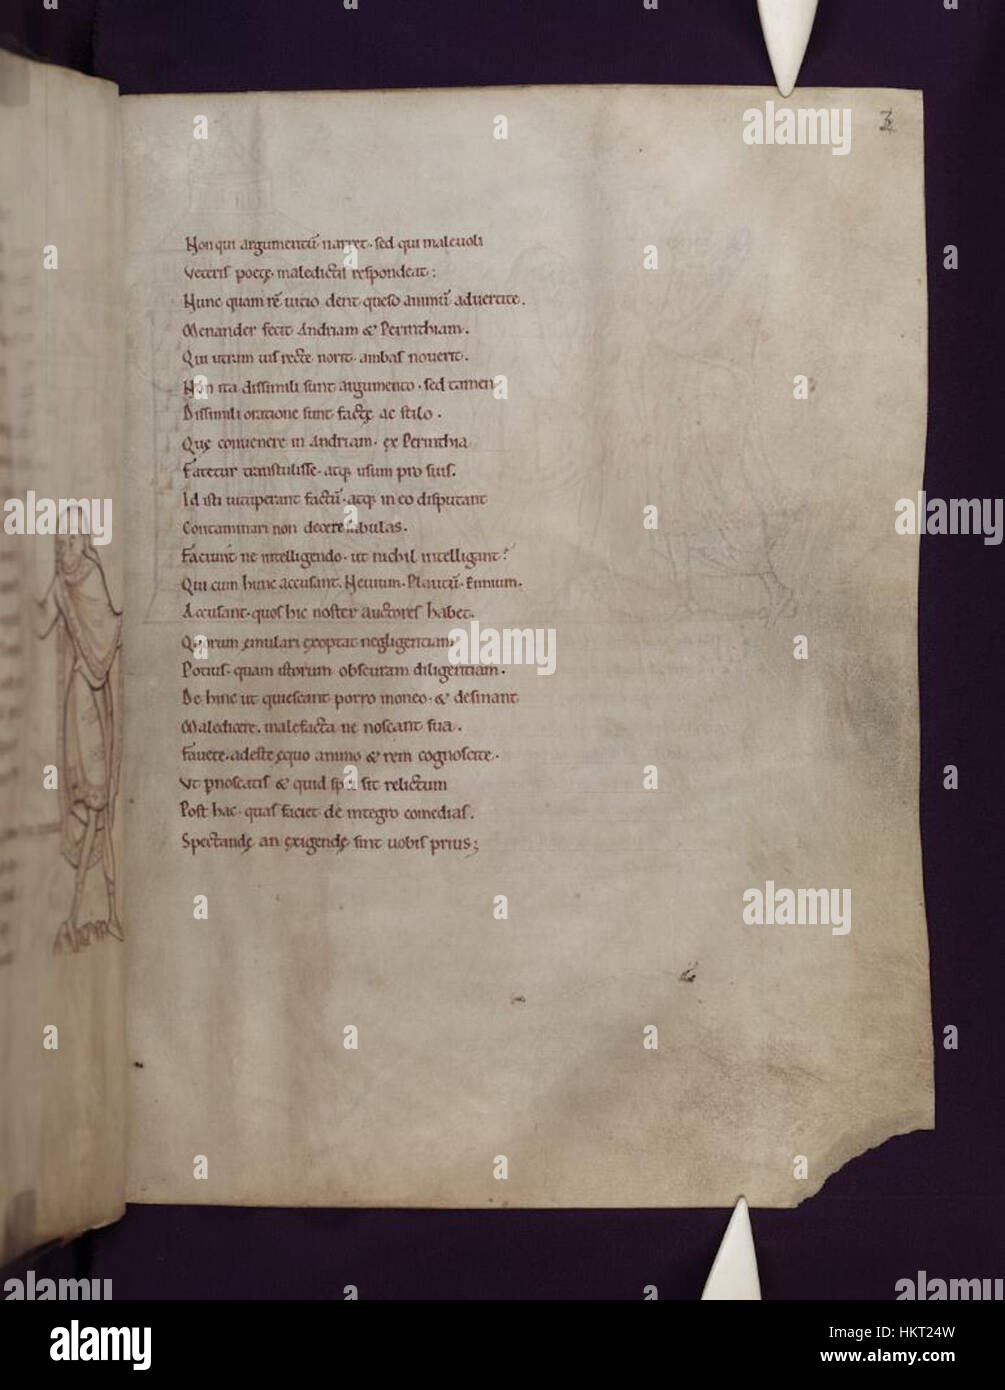 3
Non qui argumentū narret. sed qui maleuoli
Veteris poetę. maledictis respondeat;
Nunc quam rē uitio dent queso animū aduertite.
Menander fecit Andriam & Perinthiam.
Qui utram uis recte norit. ambas nouerit.
Non ita dissimili sunt argumento. sed tamen
Dissimili oratione sunt factę ac stilo.
Quę conuenere in Andriam. ex Perinthia
Fatetur transtulisse. atq; usum pro suis.
Id isti uituperant factū. atq; in eo disputant
Contaminari non decere fabulas.
Faciunt ne intelligendo. ut nichil intelligant?
Qui cum hunc accusant. Neuium. Plautū. Ennium.
Accusant. quos hic noster auctores habet.
Quorum ęmulari exoptat negligentiam
Potius. quam istorum obscuram diligentiam.
De hinc ut quiescant porro moneo. & desinant
Maledicere. malefacta ne noscant sua.
Fauete. adeste ęquo animo & rem cognoscite.
Vt pnoscatis & quid spei sit relictum
Post hac. quas faciet de integro comedias.
Spectandę an exigendę sint uobis prius;
a alamy
alamy
Image ID: HKT24W
www.alamy.com